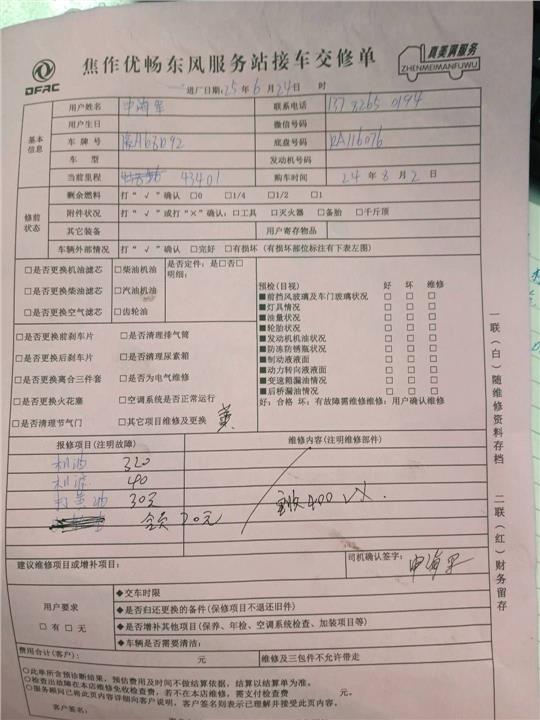 DFAC
焦作优畅东风服务站接车交修单
真美满服务
ZHENMEIMANFUWU
进厂日期:25年6月24日 时
基本信息
用户姓名 申海军 联系电话 137 8265 0194
用户生日 微信号码
车牌号 底盘号码 RA116076
车型 发动机号码
当前里程 43401 购车时间 24年8月2日
修前状态
剩余燃料 打“√”确认 □0 □1/4 □1/2 □1
附件状况 打“√”或打“×”确认:□工具 □灭火器 □备胎 □千斤顶
其它装备 用户寄存物品
车辆外部情况 打“√”确认 □完好 □有损坏(有损坏部位标注有下表左图)
□是否更换机油滤芯 □柴油机油
□是否更换柴油滤芯 □汽油机油
□是否更换空气滤芯 □齿轮油
是否定件:是□否□
明细:
□是否更换前刹车片 □是否清理排气筒
□是否更换后刹车片 □是否清理尿素箱
□是否更换离合三件套 □是否为电气维修
□是否更换火花塞 □空调系统是否正常运行
□是否清理节气门 □其它项目维修及更换
预检(目视) 好 坏 维修
■前挡风玻璃及车门玻璃状况 □ □ □
■灯具情况 □ □ □
■油量状况 □ □ □
■轮胎状况 □ □ □
■发动机机油状况 □ □ □
■防冻防锈瓶状况 □ □ □
■制动液液面 □ □ □
■动力转向液液面 □ □ □
■变速箱漏油情况 □ □ □
■后桥漏油情况 □ □ □
好:合格 坏:有故障需维修维修:用户确认维修
报修项目(注明故障) 维修内容(注明维修部件)
机油 320
机滤 40
打黄油 30元
70元
实收400
建议维修项目或增补项目:
司机确认签字:
申海军
用户要求
□有 □无
◆交车时限
◆是否归还更换的备件(保修项目不退还旧件)
◆是否增补其他项目(保养、年检、空调系统检查、加装项目等)
◆车辆是否需要清洁:
费用合计(客户): 元 维修及三包件不允许带走
○此单所含预诊断结果,预估费用及时间不做结算依据,结算以结算单为准。
○检查出故障在本店维修免收检查费,若不在本店维修,需支付检查费 元。
○服务顾问已将此页内容详细向客户说明,客户签名则表示已理解并接受此页内容。
客户签名:
一联(白)随维修资料存档
二联(红)财务留存